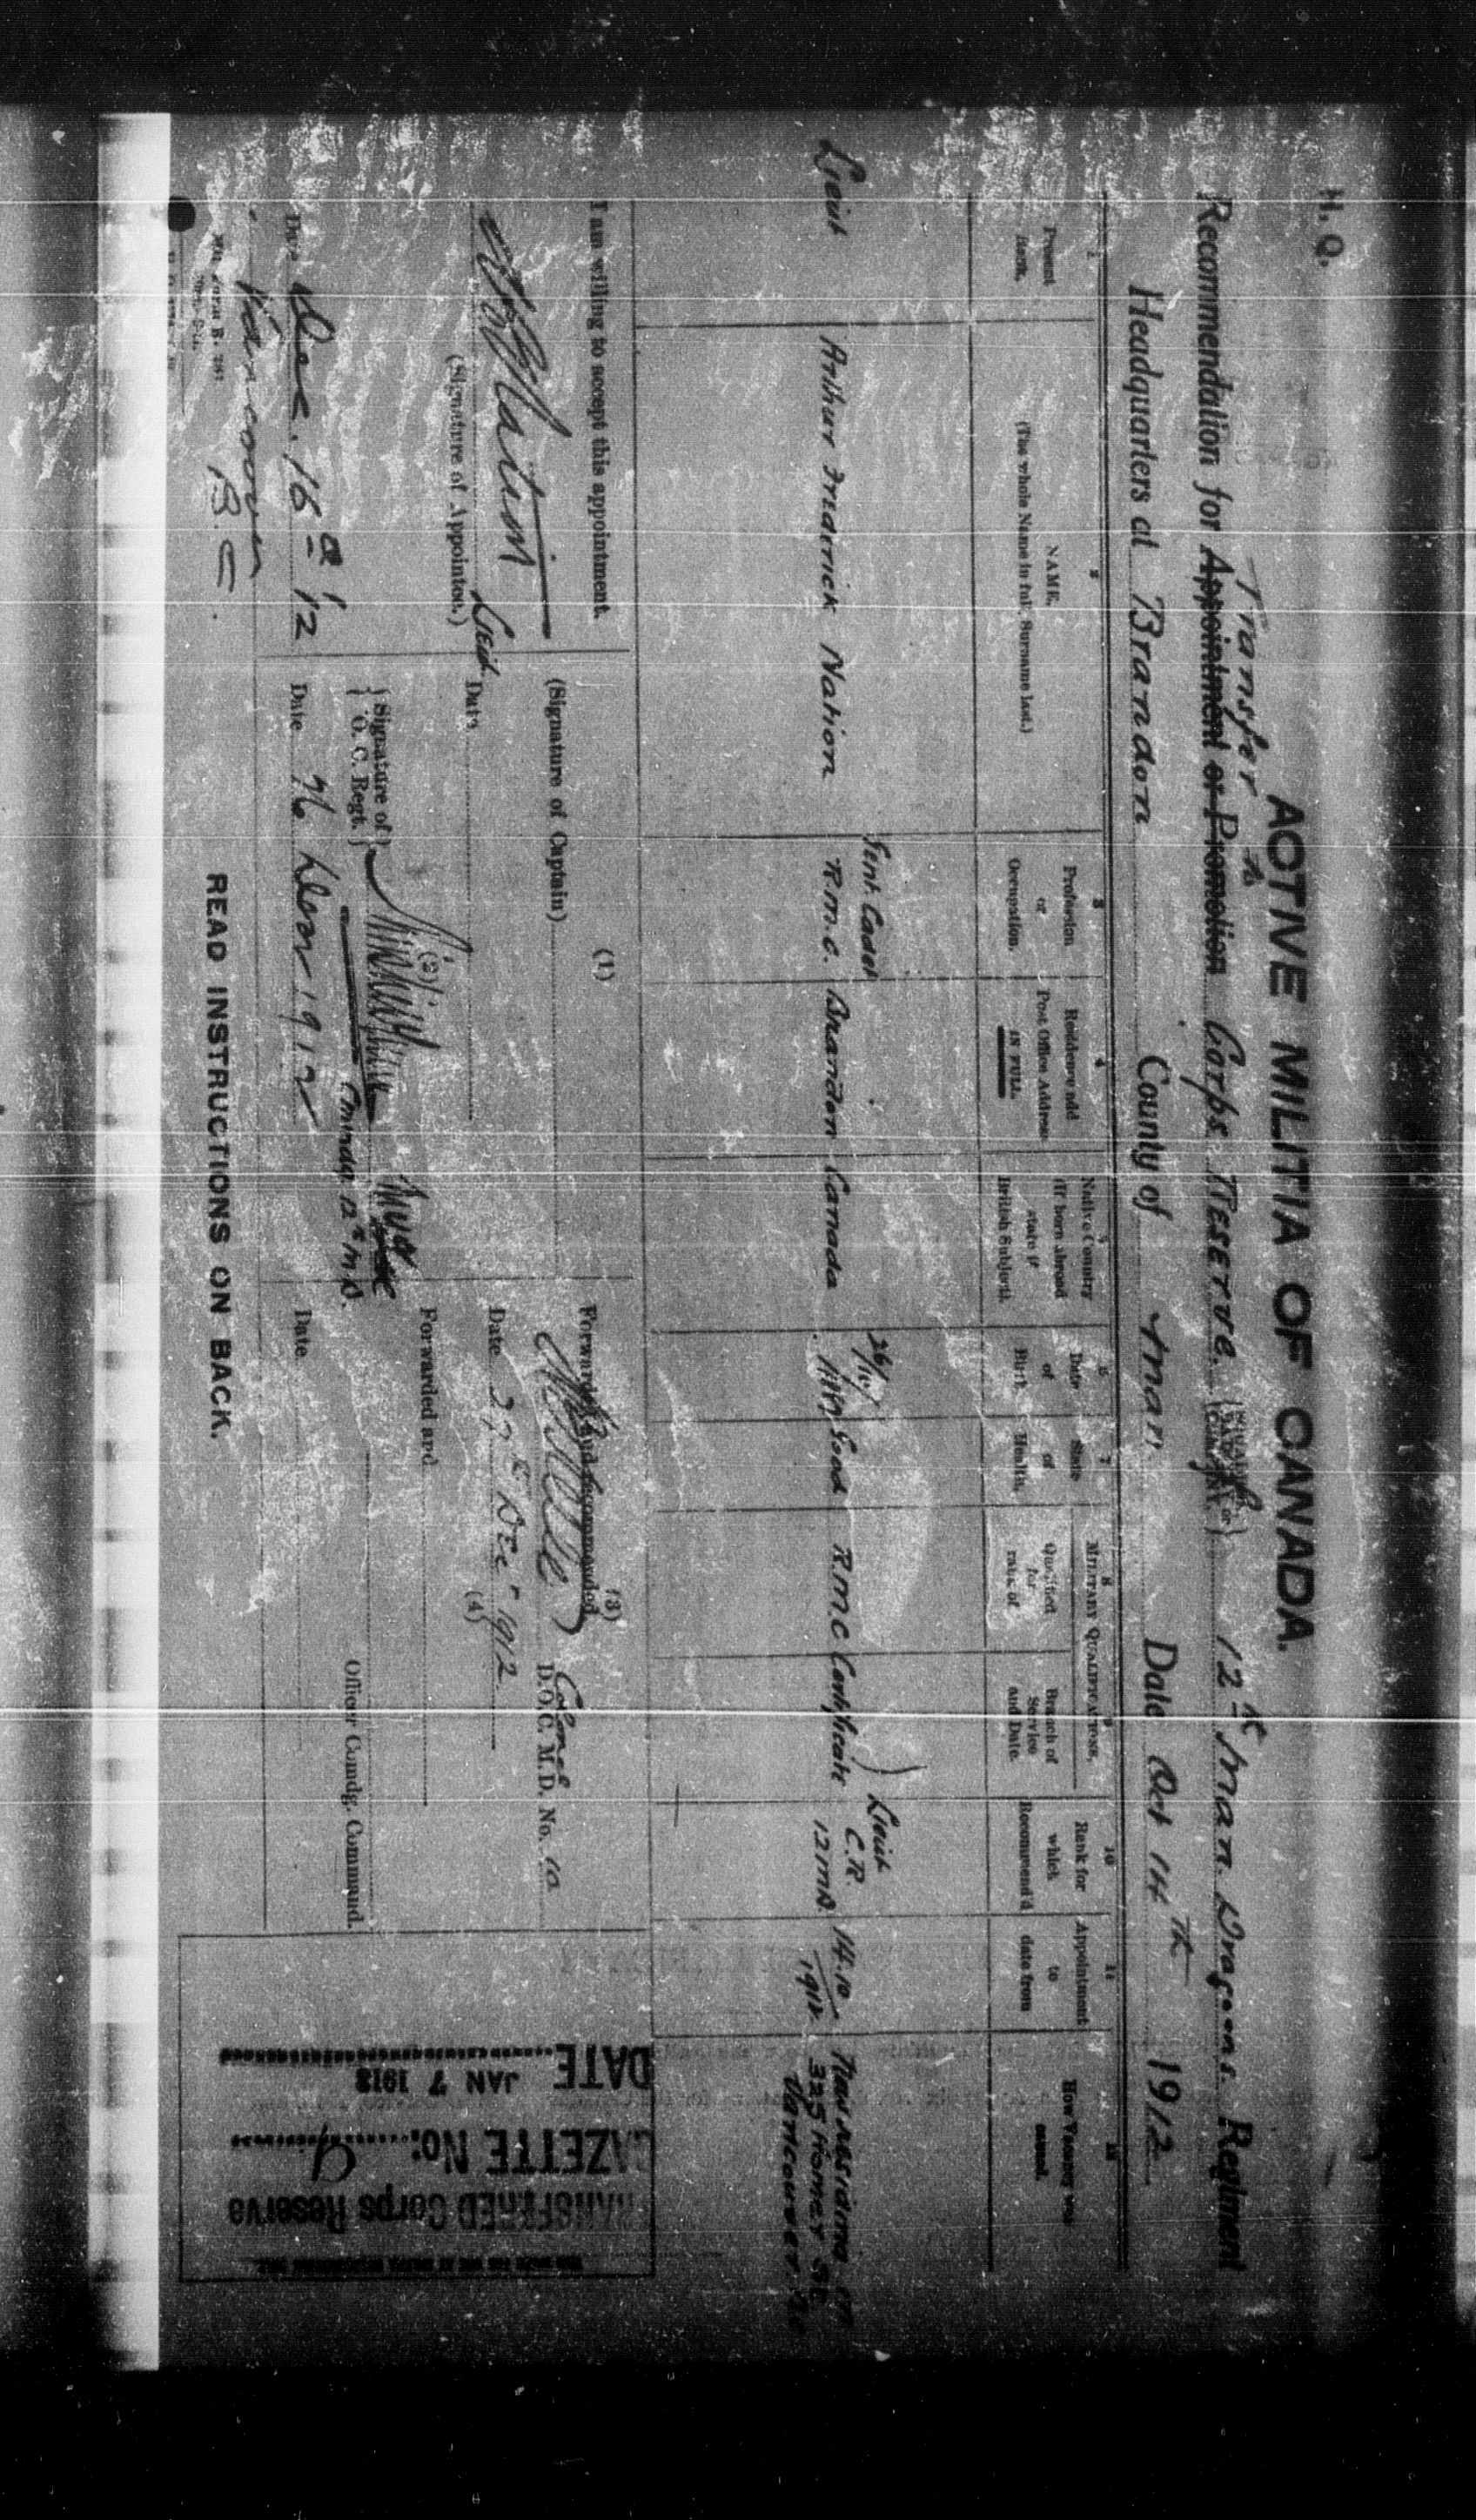 H. Q.
ACTIVE MILITIA OF CANADA.
Transfer to
Recommendation for Appointment or Promotion Corps Reserve. 12th Man. Dragoons. Regiment
Headquarters at Brandon County of Man. Date Oct 14th 1912
1 Present Rank.
2 NAME. (The whole Name in full. Surname last.)
3 Profession or Occupation.
4 Residence and Post Office Address IN FULL.
5 Native Country (If born abroad state if British Subject).
6 Date of Birth.
7 State of Health.
MILITARY QUALIFICATIONS.
8 Qualified for rank of
9 Branch of Service and Date.
10 Rank for which Recommend'd
11 Appointment to date from
12 How Vacancy was caused.
Lieut
Arthur Frederick Nation
Gent. Cadet R.M.C.
Brandon
Canada
26/10/
Good
R.M.C Certificate
Lieut C.R. 12 MD.
14.10. 1912.
Now residing at 325 Homer St. Vancouver
I am willing to accept this appointment.
Lieut
(Signature of Appointee.)
Date Dec. 16 '12
Vancouver
B.C.
(1)
(Signature of Captain)
Date
(2)
{Signature of O. C. Regt.}
Date 26 1912
(3)
Forwarded and Recommended
Colonel
D.O.C. M.D. No. 10
Date 27th Dec 1912.
(4)
Forwarded and
Officer Comdg. Command.
Date
READ INSTRUCTIONS ON BACK.
TRANSFERRED Corps Reserve
GAZETTE No:
DATE JAN 7 1913